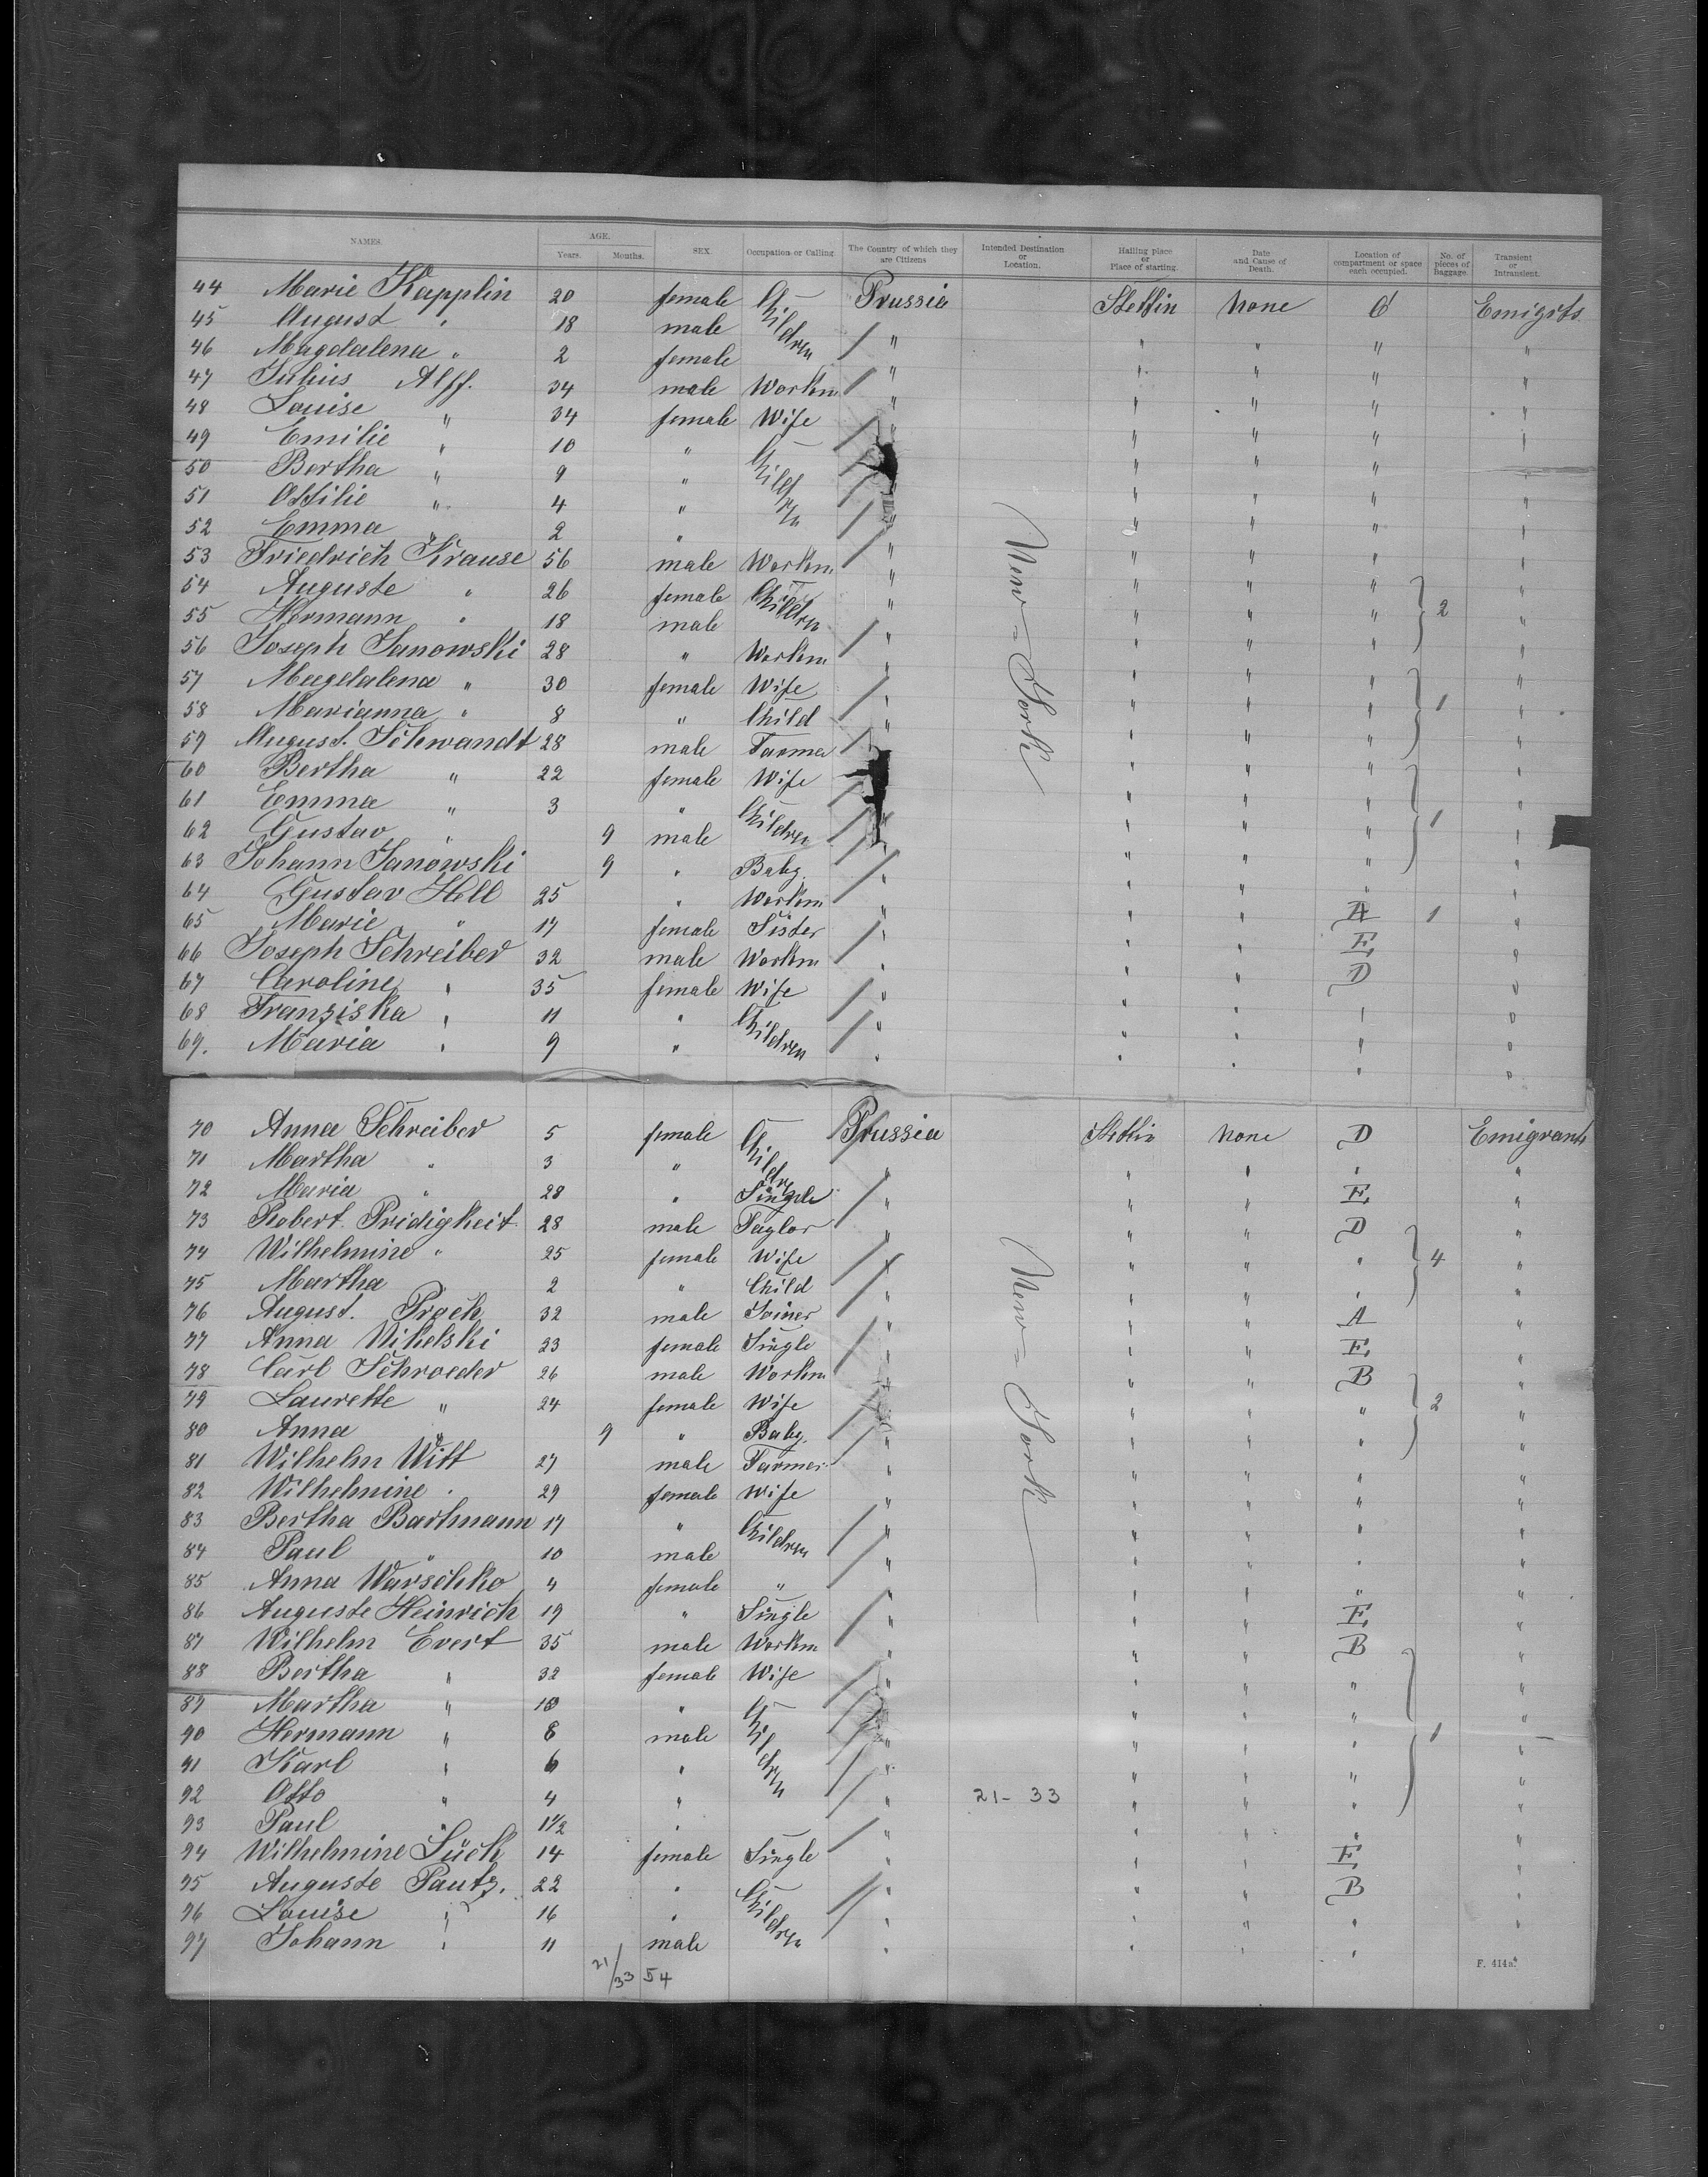 NAMES. AGE. Years. Months. SEX. Occupation or Calling The Country of which they are Citizens Intended Destination or Location. Hailing place or Place of starting. Date and Cause of Death. Location of compartment or space each occupied. No. of pieces of baggage. Transient or Intransient.
44 Marie Kapplin 20 female Children Prussia Stettin None C Emigrts
45 August " 18 male " " " " "
46 Magdalena " 2 female " " " " "
47 Julius Alff. 34 male Workm " " " " "
48 Louise " 34 female Wife " " " " "
49 Emilie " 10 " Children " " " " "
50 Bertha " 9 " " " " " "
51 Ottilie " 4 " " " " " "
52 Emma " 2 " " " " " "
53 Friedrich Krause 56 male Workm " " " " "
54 Auguste " 26 female Children " " " " 2 "
55 Hermann " 18 male " " " " "
56 Joseph Janowski 28 " Workm " " " " "
57 Magdalena " 30 female Wife " New-York " " " 1 "
58 Marianna " 8 " Child " " " " "
59 August. Schwandt 28 male Farmer " " " " "
60 Bertha " 22 female Wife " " " " "
61 Emma " 3 " Children " " " " 1 "
62 Gustav " 9 male " " " " "
63 Johann Janowski 9 " Baby. " " " " "
64 Gustav Hell 25 " Workm " " " A 1 "
65 Marie " 17 female Sister " " " E "
66 Joseph Schreiber 32 male Workm " " " D "
67 Caroline " 35 female Wife " " " " "
68 Franziska " 11 " Children " " " " "
69. Maria " 9 " " " " " "
70 Anna Schreiber 5 female Children Prussia Stettin None D Emigrants
71 Martha " 3 " " " " " "
72 Maria " 28 " Single " " " E "
73 Robert. Pridigkeit 28 male Taylor " " " D "
74 Wilhelmine " 25 female Wife " " " " 4 "
75 Martha 2 " Child " " " " "
76 August. Proch 32 male Joiner " " " A "
77 Anna Nikelski 23 female Single " " " E "
78 Carl Schroeder 26 male Workm " New-York " " B "
79 Laurette " 24 female Wife " " " " 2 "
80 Anna " 9 " Baby. " " " " "
81 Wilhelm Witt 27 male Farmer " " " " "
82 Wilhelmine " 29 female Wife " " " " "
83 Bertha Barhmann 17 " Children " " " " "
84 Paul " 10 male " " " " "
85 Anna Warschko 4 female " " " " " "
86 Auguste Heinrich 19 " Single " " " E "
87 Wilhelm Evert 35 male Workm " " " B "
88 Bertha " 32 female Wife " " " " "
89 Martha " 10 " Children " " " " "
90 Hermann " 8 male " " " " 1 "
91 Karl " 6 " " " " " "
92 Otto " 4 " " 21 - 33 " " " "
93 Paul " 1 1/2 " " " " " "
94 Wilhelmine Lück 14 female Single " " " E "
95 Auguste Pautz. 22 " Children " " " B "
96 Louise " 16 " " " " " "
97 Johann " 11 male " " " "
21/33 54
F. 414a.